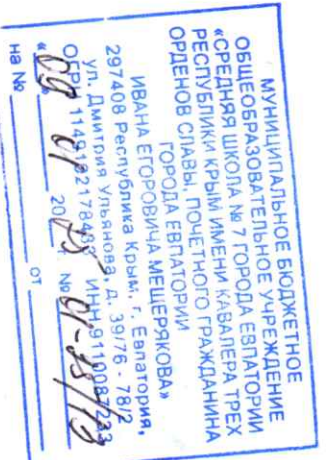 МУНИЦИПАЛЬНОЕ БЮДЖЕТНОЕ
ОБЩЕОБРАЗОВАТЕЛЬНОЕ УЧРЕЖДЕНИЕ
«СРЕДНЯЯ ШКОЛА № 7 ГОРОДА ЕВПАТОРИИ
РЕСПУБЛИКИ КРЫМ ИМЕНИ КАВАЛЕРА ТРЕХ
ОРДЕНОВ СЛАВЫ, ПОЧЕТНОГО ГРАЖДАНИНА
ГОРОДА ЕВПАТОРИИ
ИВАНА ЕГОРОВИЧА МЕЩЕРЯКОВА»
297408 Республика Крым, г. Евпатория,
ул. Дмитрия Ульянова, д. 39/76 - 78/2
ОГРН ИНН
« 09 01 20 №
на № от